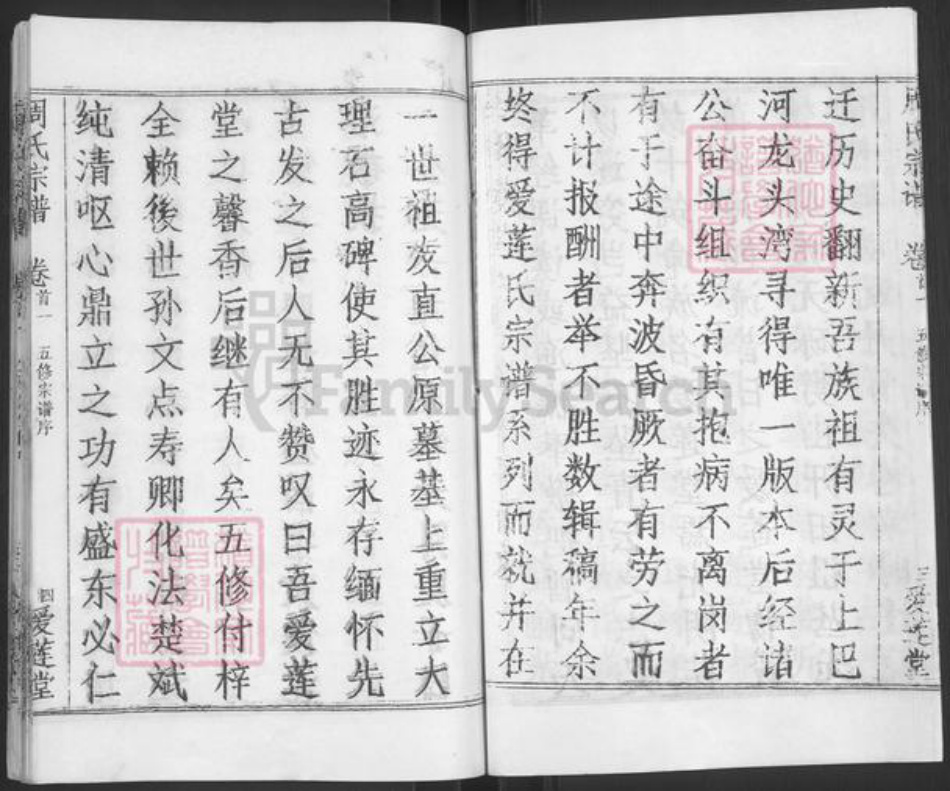 迁历史翻新吾族祖有灵于上巴
河龙头湾寻得唯一版本后经诸
公奋斗组织有其抱病不离岗者
有于途中奔波昏厥者有劳之而
不计报酬者举不胜数辑稿年余
终得爱莲氏宗谱系列而就并在
周氏宗谱 卷首一 五修宗谱序 四 爱莲堂
一世祖发直公原墓基上重立大
理石高碑使其胜迹永存缅怀先
古发之后人无不赞叹曰吾爱莲
堂之馨香后继有人矣五修付梓
全赖後世孙文点寿卿化法楚斌
纯清呕心鼎立之功有盛东必仁
FamilySearch